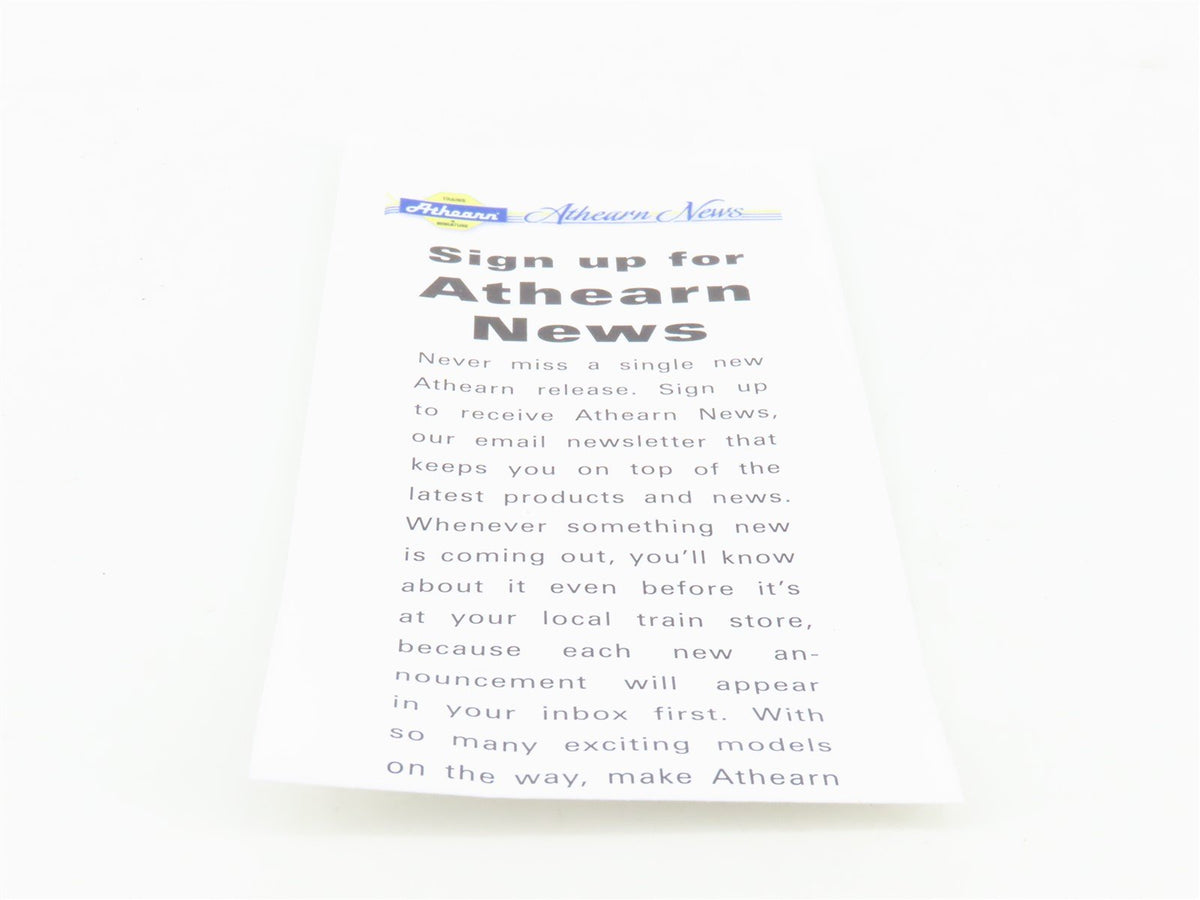 TRAINS
Athearn
IN
MINIATURE
Athearn News
Sign up for
Athearn
News
Never miss a single new
Athearn release. Sign up
to receive Athearn News,
our email newsletter that
keeps you on top of the
latest products and news.
Whenever something new
is coming out, you'll know
about it even before it's
at your local train store,
because each new an-
nouncement will appear
in your inbox first. With
so many exciting models
on the way, make Athearn